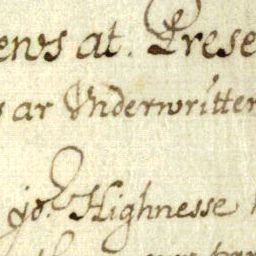 ews at. Prese
s ar Vnderwritten
yo.r Highnesse